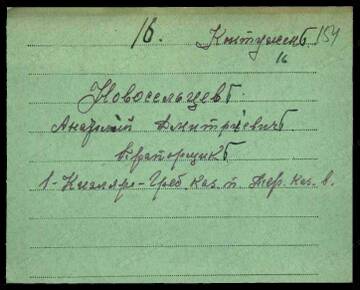 16. Контужен​ъ 154
16
Новосельцевъ.
Анатолій Дмитріевичъ
Прапорщикъ
1-Кизляро-Греб. каз. п. Тер. каз. в.